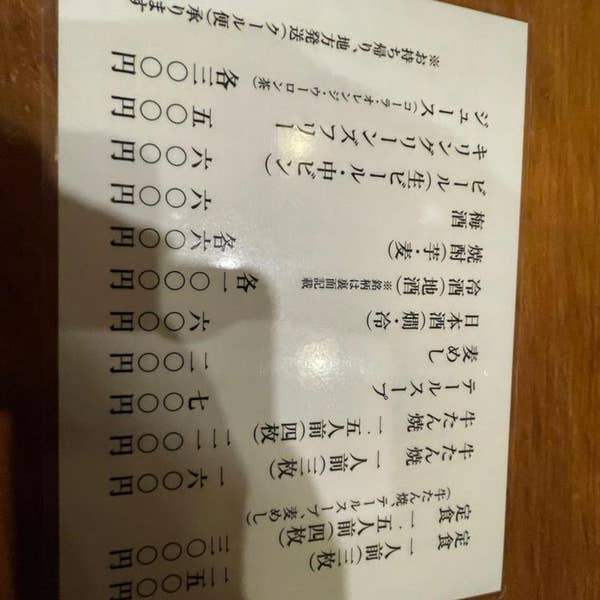 定食 一人前(三枚) 二五〇〇円
定食 一.五人前(四枚) 三〇〇〇円
(牛たん焼、テールスープ、麦めし)
牛たん焼 一人前(三枚) 一六〇〇円
牛たん焼 一.五人前(四枚) 二一〇〇円
テールスープ 七〇〇円
麦めし 二〇〇円
日本酒(燗・冷) 六〇〇円
冷酒(地酒)※銘柄は裏面記載 各一〇〇〇円
焼酎(芋・麦) 各六〇〇円
梅酒 六〇〇円
ビール(生ビール・中ビン) 六〇〇円
キリングリーンズフリー 五〇〇円
ジュース(コーラ・オレンジ・ウーロン茶) 各三〇〇円
※お持ち帰り、地方発送(クール便)承ります